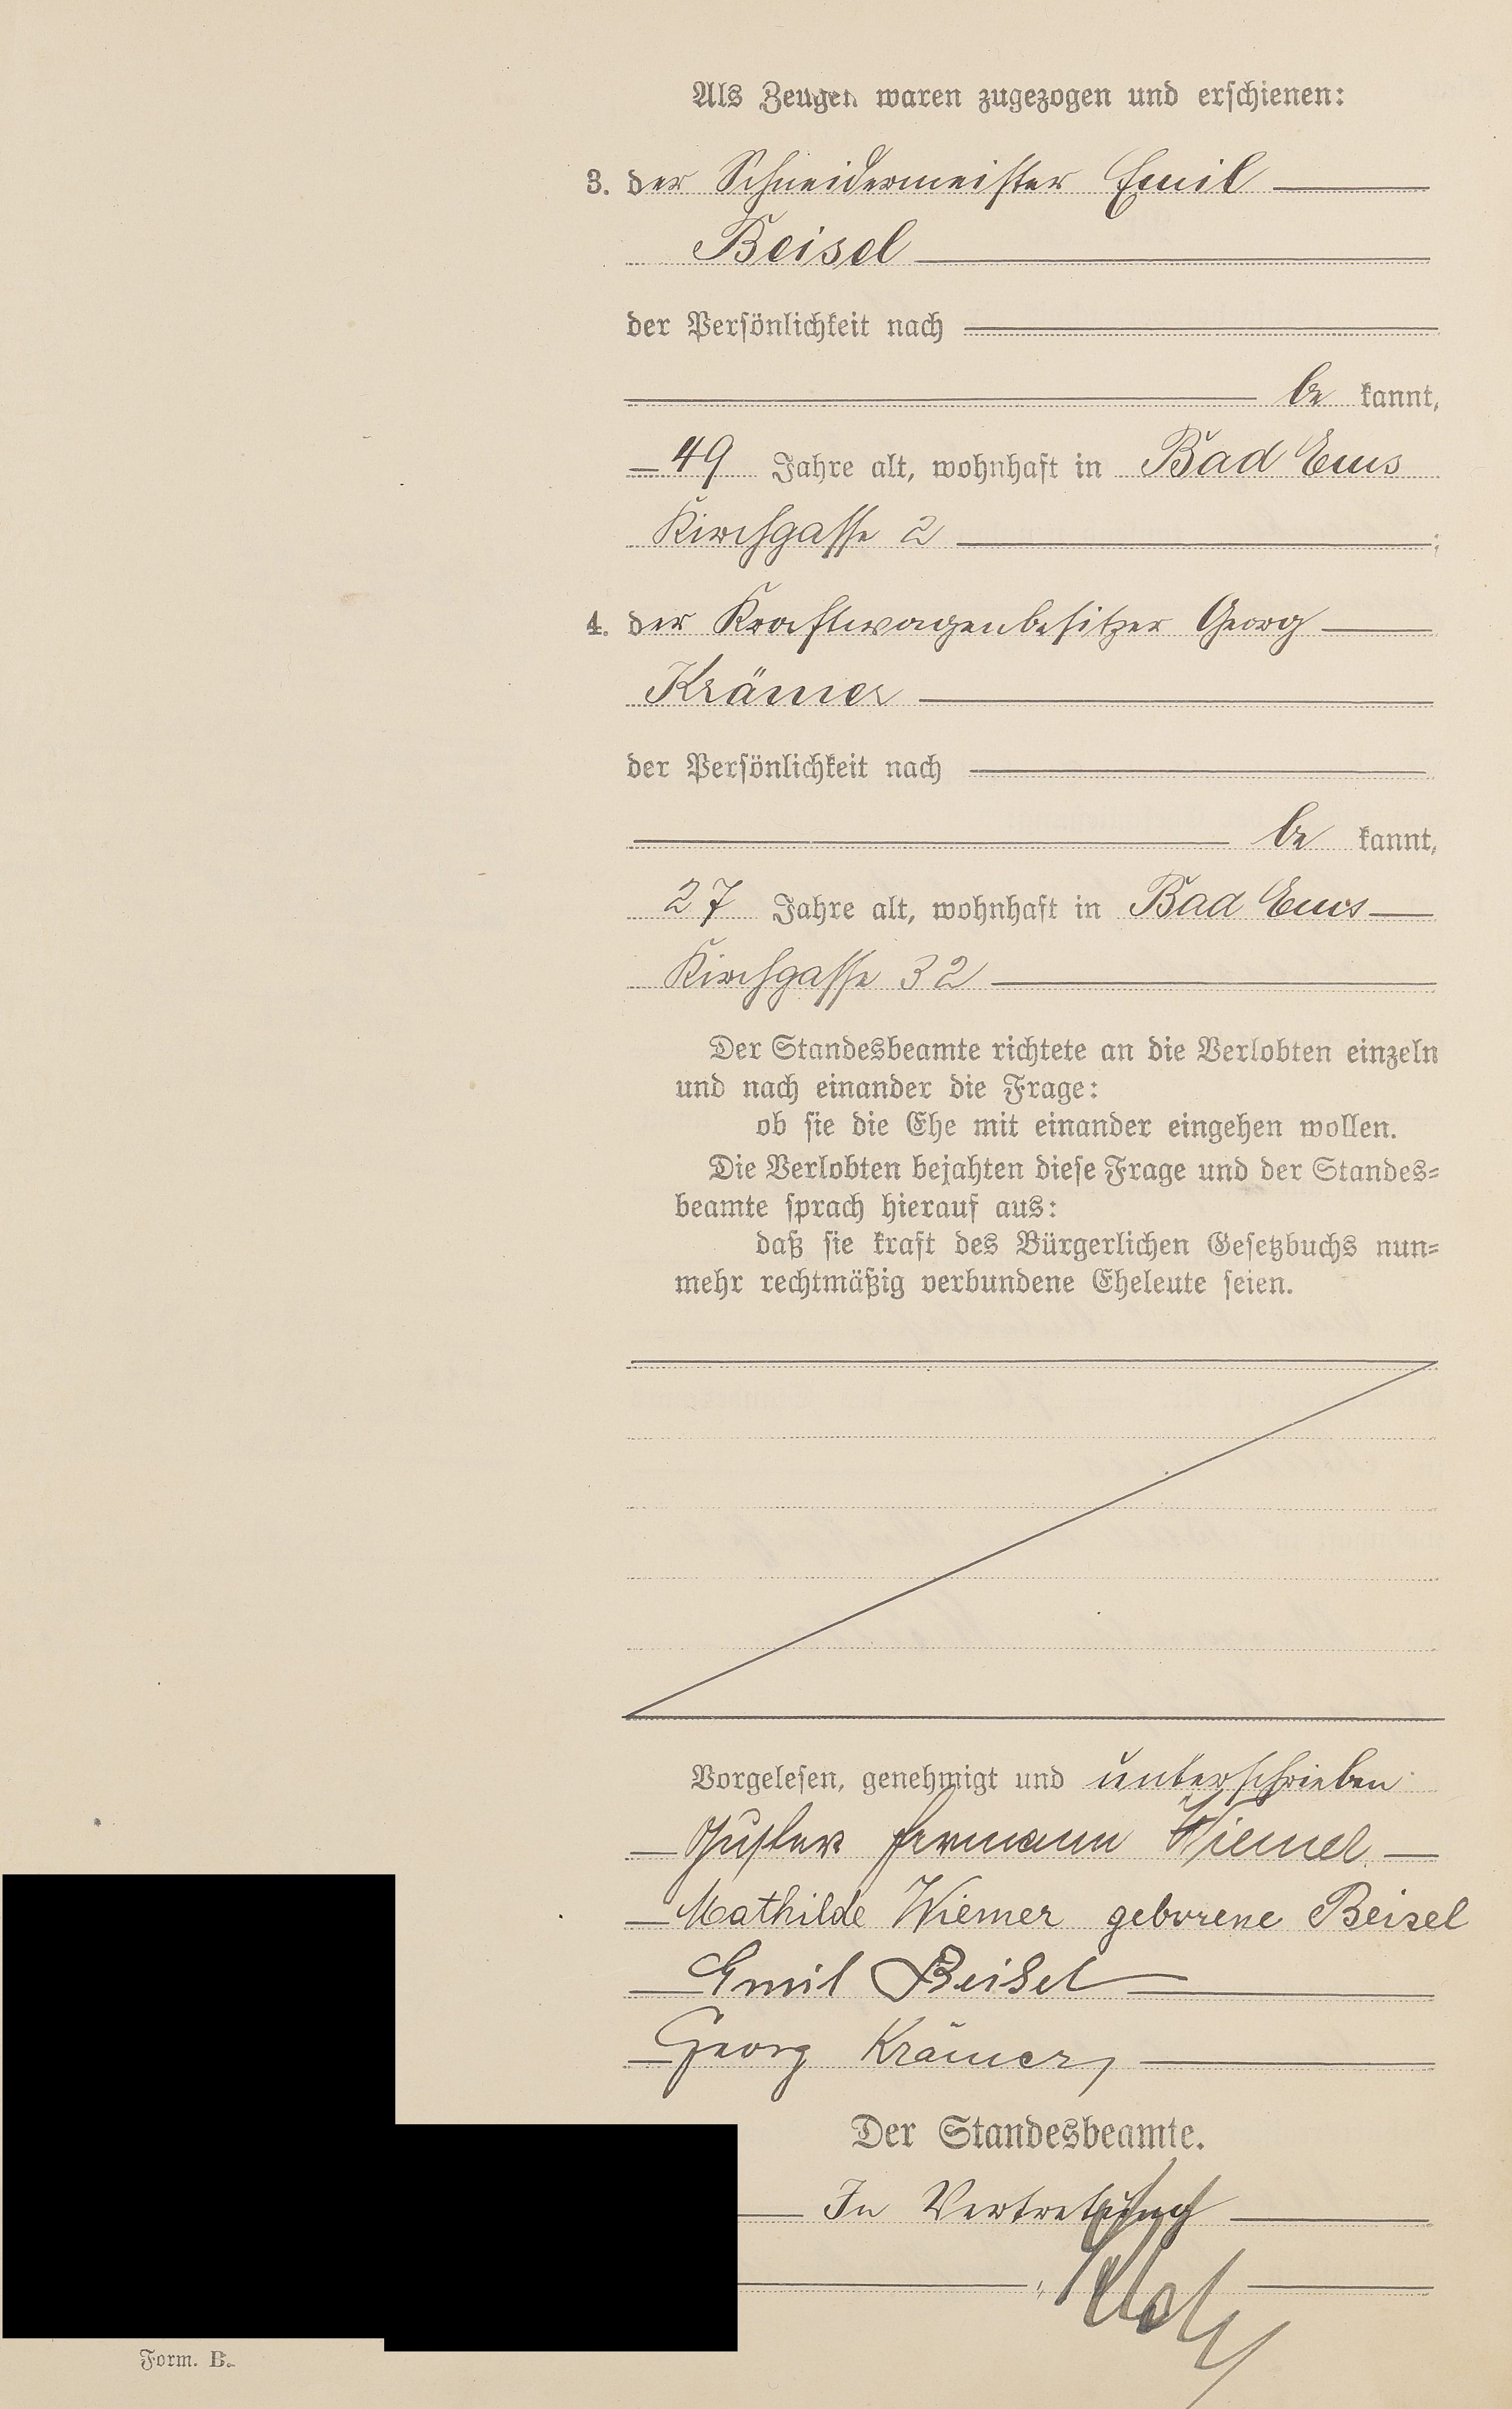 Als Zeugen waren zugezogen und erschienen:
3. der Schneidermeister Emil
Beisel
der Persönlichkeit nach
be kannt,
49 Jahre alt, wohnhaft in Bad Ems
Kirchgasse 2 ;
4. der Kraftwagenbesitzer Georg
Krämer
der Persönlichkeit nach
be kannt,
27 Jahre alt, wohnhaft in Bad Ems
Kirchgasse 32
Der Standesbeamte richtete an die Verlobten einzeln
und nach einander die Frage:
ob sie die Ehe mit einander eingehen wollen.
Die Verlobten bejahten diese Frage und der Standes=
beamte sprach hierauf aus:
daß sie kraft des Bürgerlichen Gesetzbuchs nun=
mehr rechtmäßig verbundene Eheleute seien.
Vorgelesen, genehmigt und unterschrieben
Gustav Hermann Wiemer
Mathilde Wiemer geborene Beisel
Emil Beisel
Georg Krämer
Der Standesbeamte.
In Vertretung
Form. B.